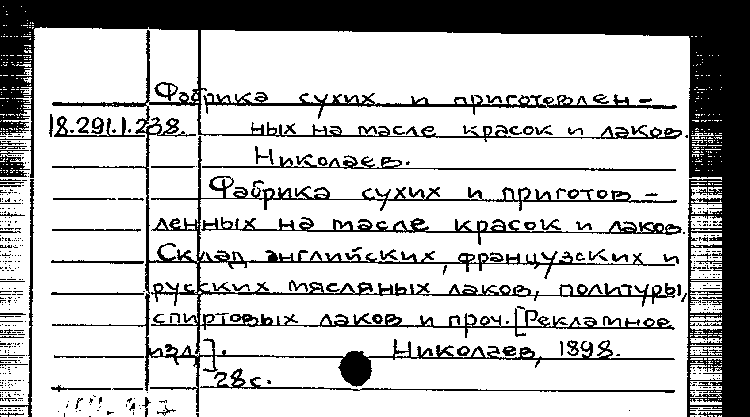 Фабрика сухих и приготовлен-
18.291.1.238. ных на масле красок и лаков.
Николаев.
Фабрика сухих и приготов-
ленных на масле красок и лаков
Склад английских, французских и
русских масляных лаков, политуры,
спиртовых лаков и проч. [Рекламное
изд.]. Николаев, 1898.
28с.